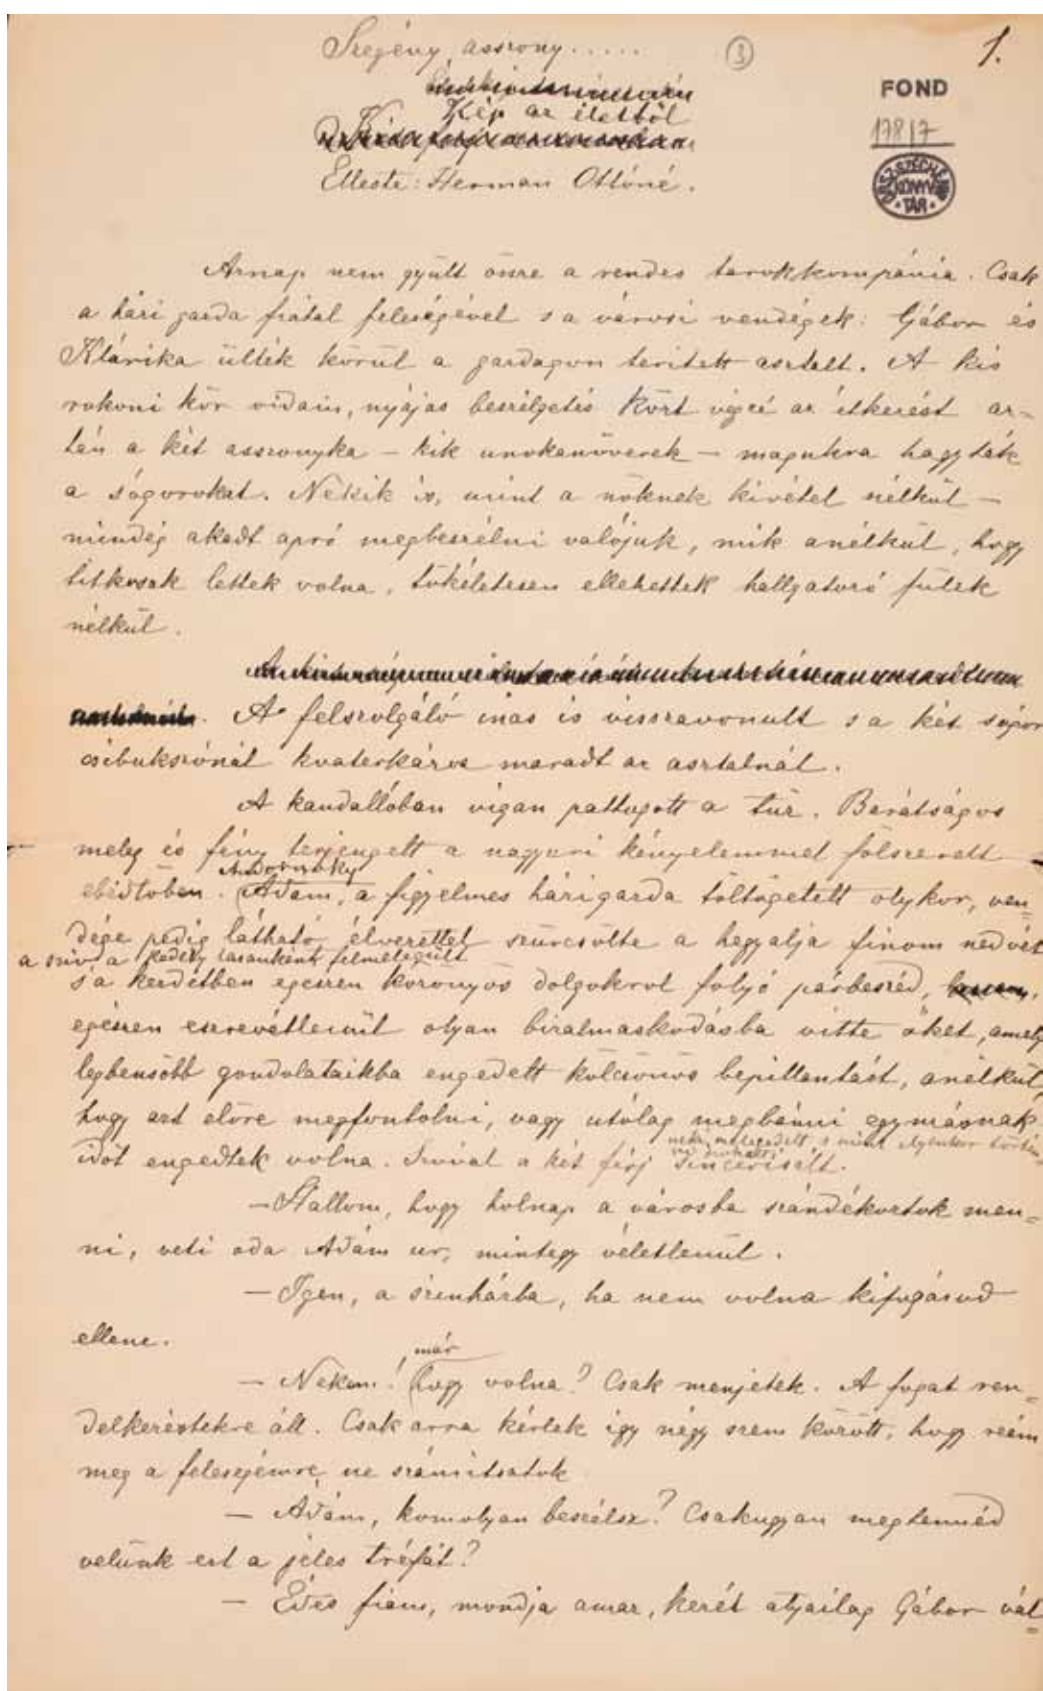 Szegény asszony.....
3
1.
Kép az életből
FOND
178/7
ORSZ. SZÉCHÉNYI
KÖNYV
TÁR
Elleste: Herman Ottóné.
Aznap nem gyült össze a rendes tarokkompánia. Csak
a házi gazda fiatal feleségével s a városi vendégek: Gábor és
Klárika ülték körül a gazdagon terített asztalt. A kis
rokoni kör vidám, nyájas beszélgetés közt végzé az étkezést az-
tán a két asszonyka – kik unokanőverek – magukra hagyták
a sógorokat. Nekik is, mint a nőknek kivétel nélkül –
mindég akadt apró megbeszélni valójuk, mik anélkül, hogy
titkosak lettek volna, tökéletesen ellehettek hallgatozó fülek
nélkül.
A felszolgáló inas is visszavonult s a két sógor
csibukszónál kvaterkázva maradt az asztalnál.
A kandallóban vígan pattogott a tűz. Barátságos
meleg és fény terjengett a nagyuri kényelemmel fölszerelt
ebédlőben. Ádám, a figyelmes házigazda töltögetett olykor, ven-
dége pedig látható élvezettel szürcsölte a hegyalja finom nedvét
a szív a kedély lassanként felmelegült
s a kezdetben egészen közönyös dolgokról folyó párbeszéd,
egészen eszrevétlenül olyan bizalmaskodásba vitte őket, amely
legbensőbb gondolataikba engedett kölcsönös bepillantást, anélkül,
hogy azt előre megfontolni, vagy utólag megbánni egymásnak
időt engedtek volna. Szóval a két férj sincerisált.
– Hallom, hogy holnap a városba szándékoztok men-
ni, veti oda Ádám ur, mintegy véletlenül.
– Igen, a szinházba, ha nem volna kifogásod
ellene.
már
– Nekem! hogy volna? Csak menjetek. A fogat ren-
delkezéstekre áll. Csak arra kérlek így négy szem között, hogy reám
meg a feleségemre ne számítsatok
– Ádám, komolyan beszélsz? Csakugyan megtennéd
velünk ezt a jeles tréfát?
– Édes fiam, mondja amaz, kezét atyailag Gábor vál-